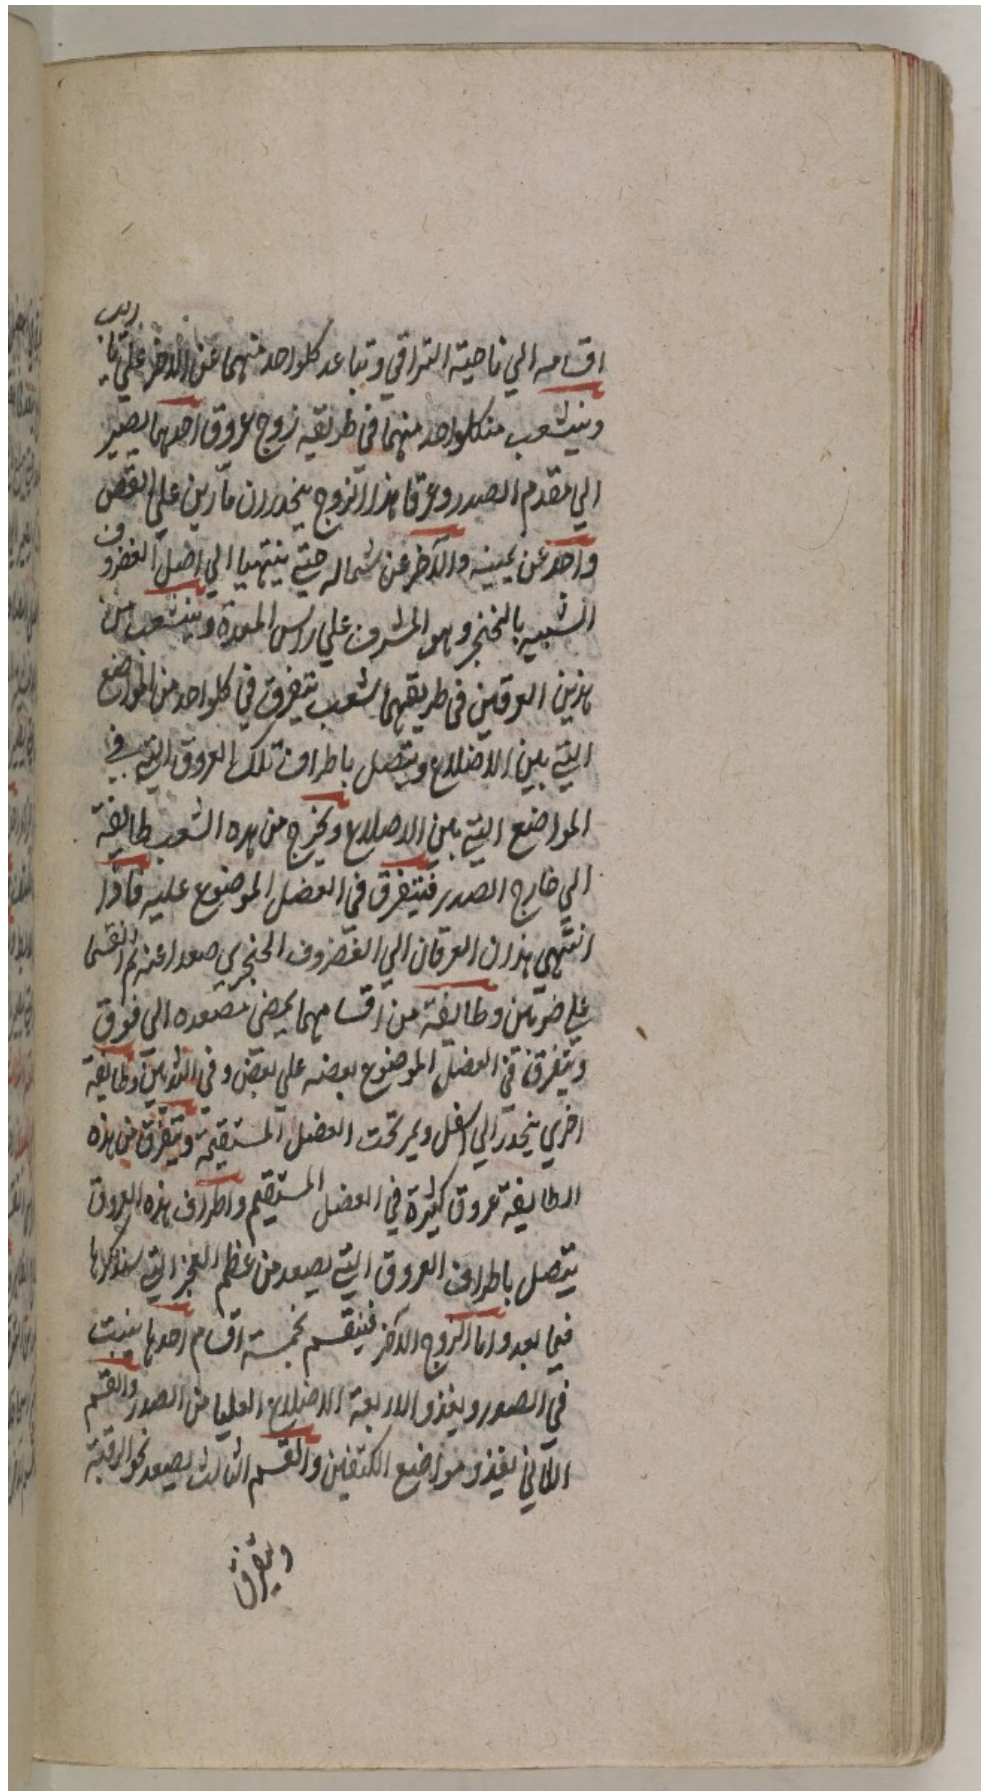 اقسامه الي ناحية التراقي وتباعد كلواحد منهما عن الاخر علي تاريب
وينشعب من كلواحد منهما في طريقه زوج عروق احدهما يصير
الي مقدم الصدر وعرقا هذا الزوج ينحدران مارين علي القص
واحد عن يمينه والآخر عن شماله حتي ينتهيا الي اصل الغضروف
الشبيه بالخنجر وهو المشرف علي راس المعدة وينشعب من
هذين العرقين في طريقهما شعب يتفرق في كلواحد من المواضع
التي بين الاضلاع ويتصل باطراف تلك العروق التي في
المواضع التي بين الاضلاع ويخرج من هذه الشعب طايفة
الي خارج الصدر فيتفرق في العضل الموضوع عليه فاذا
انتهي هذان العرقان الي الغضروف الخنجري صعدا عنه ثم انقسما
علي ضربين وطايفة من اقسامهما يمضي مصعده الي فوق
ويتفرق في العضل الموضوع بعضه علي بعض وفي الثديين وطايفة
اخري ينحدر الي اسفل ويمر تحت العضل المستقيمة ويتفرق من هذه
الطايفة عروق كثيرة في العضل المستقيم واطراف هذه العروق
يتصل باطراف العروق التي يصعد من عظم العجز التي سنذكرها
فيما بعد واما الزوج الاخر فينقسم بخمسة اقسام احدها ينبت
في الصدر ويغذو الاربعة الاضلاع العليا من الصدر والقسم
الثاني يغذو مواضع الكتفين والقسم الثالث يصعد نحو الرقبة
ويتفرق